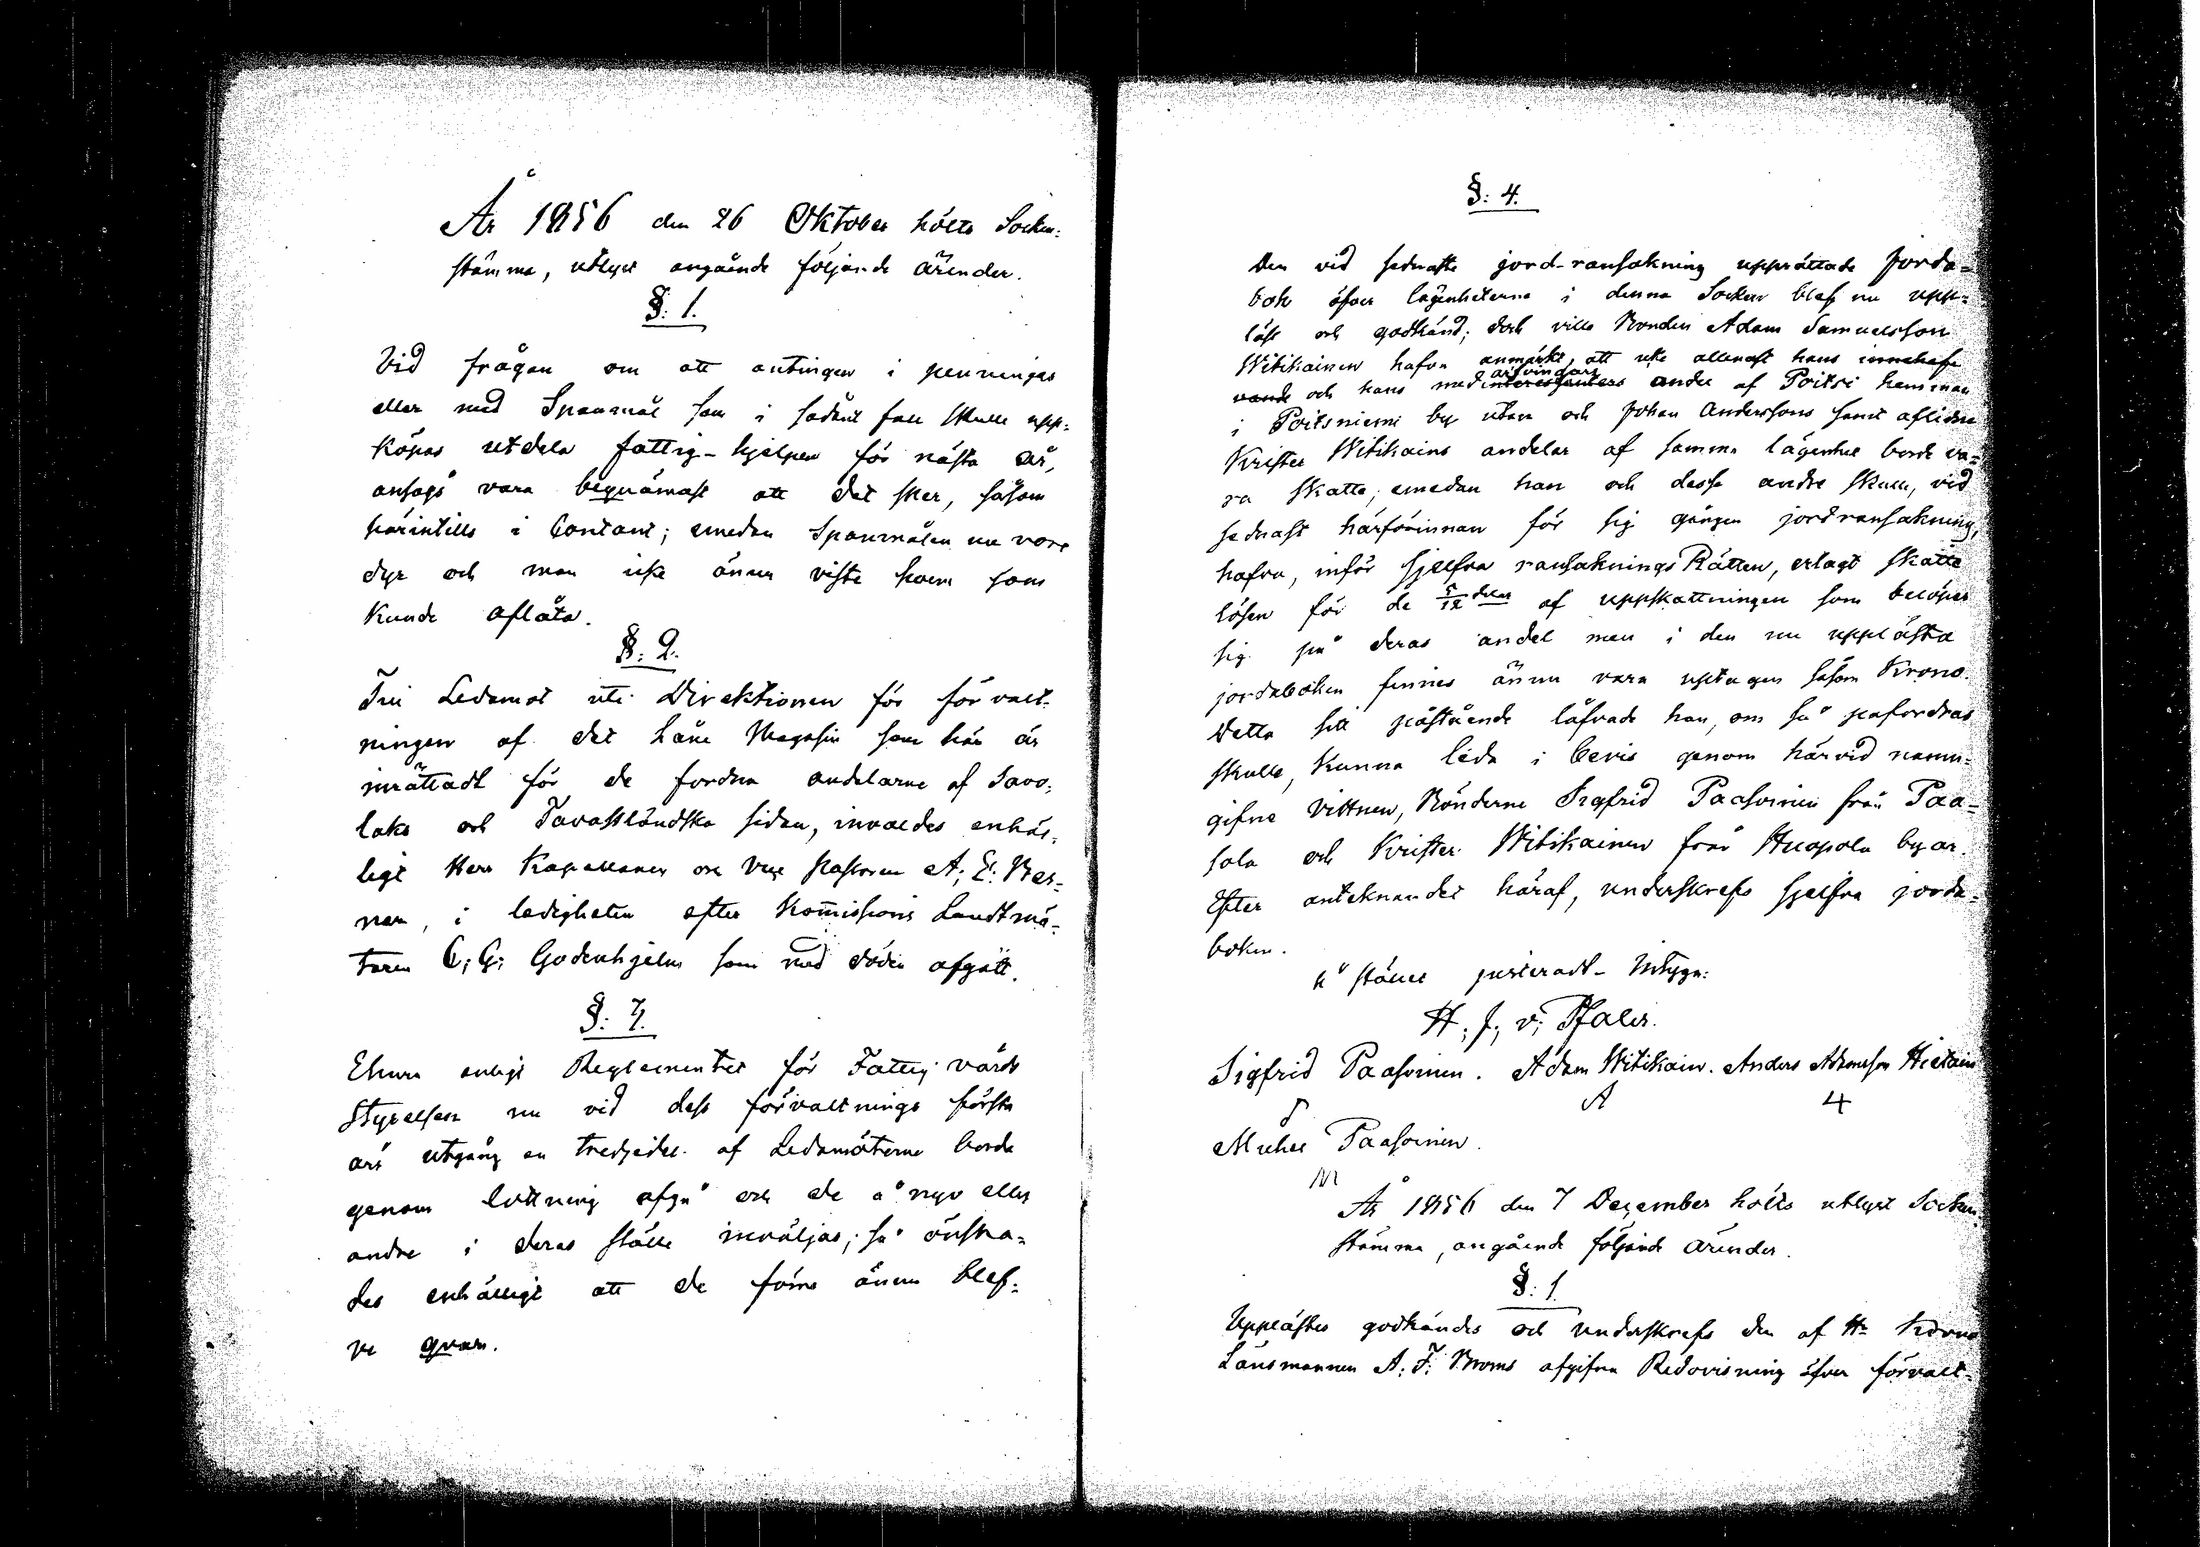 År 1856 den 26 Oktober hölts Socken-
stämma, utlyst angående följande ärender.
§: 1.
Vid frågan om att antingen i penningar
eller med Spanmål som i sådant fall skulle upp-
köpas utdela fattig-hjelpen för nästa år,
ansågs vara beqvämast att det sker, såsom
härintills i Contant; emedan Spanmålen nu vore
dyr och man icke ännu visste hvem som
kunde aflåta.
§: 2.
Till Ledamot uti Direktionen för förvalt-
ningen af det Låne Magasin som här är
inrättadt för de fordna andelarne af Savo-
laks och Tavastländska sidan, invaldes enhäl-
ligt Herr Kapellanen och Vice Pastoren A; E: Ber-
ner, i ledigheten efter Kommissions Landtmä-
taren C; G; Godenhjelm som med döden afgått.
§: 3.
Ehuru enligt Reglementet för Fattigvårds
Styrelsen nu vid dess förvaltnings första
års utgång en tredjedel af Ledamöterne borde
genom lottning afgå och de å nyo eller
andre i deras ställe inväljas; så önska-
des enhälligt att de förre ännu blef-
ve qvar.
§: 4.
Den vid sednaste jord-ransakning upprättade Jorda-
bok öfver lägenheterna i denna Socken blef nu upp-
läst och godkänd; dock ville Bonden Adam Samuelsson
Witikainen hafva anmärkt, att icke allenast hans innehaf-
vande och hans medarfvingars interessenters andel af Poitsi hemman
i Poitsniemi by utan och Johan Anderssons samt aflidne
Krister Witikains andelar af samma lägenhet borde va-
ra skatte; emedan han och desse andre skulle, vid
sednast härförinnan för sig gången jordransakning,
hafva, inför sjelfva ransaknings Rätten, erlagt skatte
lösen för de 5/12 delar af uppskattningen som belöpes
sig på deras andel men i den nu upplästa
jordaboken finnes ännu vara upptagen såsom Krono.
Detta sitt påstående låfvade han, om så påfordras
skulle, kunna leda i bevis genom härvid namn-
gifne vittnen, Bönderne Sigfrid Paasoinen från Paa-
sola och Krister Witikainen från Huopola byar.
Efter antecknandet häraf, underskrefs sjelfva jorda-
boken.
På stället justeradt - Intyga:
H; J; v; Pfaler.
Sigfrid Paasoinen. Adam Witikain. Anders Adamsson Hietain
A 4
Michel Paasoinen.
M
År 1856 den 7 December hölts utlyst Socken-
stämma, angående följande ärender.
§: 1.
Upplästes godkändes och underskrefs den af Hr Krono
Länsmannen A; F: Broms afgifna Redovisning öfver förvalt-